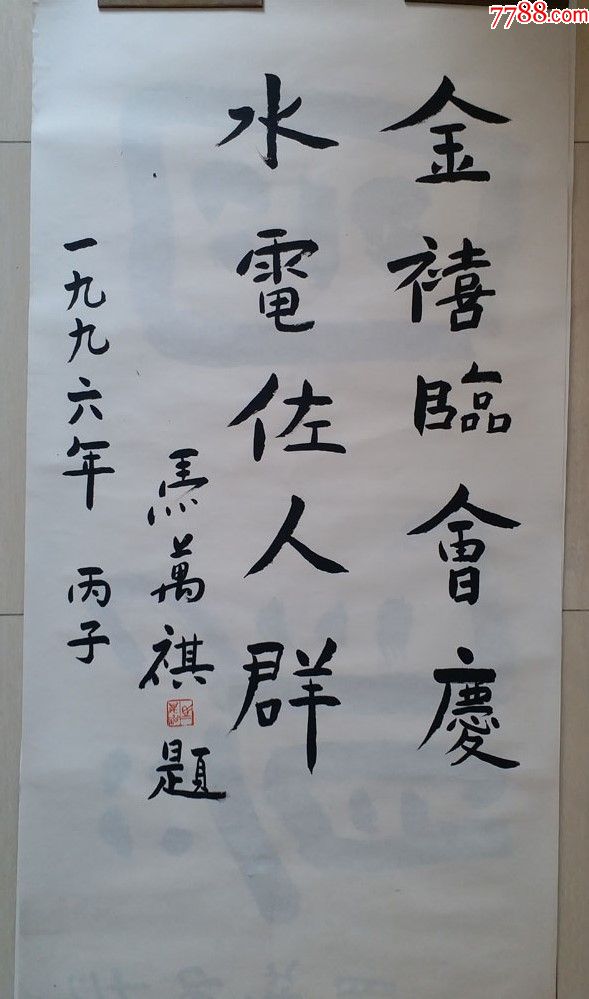 7788.com
金禧臨會慶
水電佐人群
馬萬祺題
一九九六年 丙子